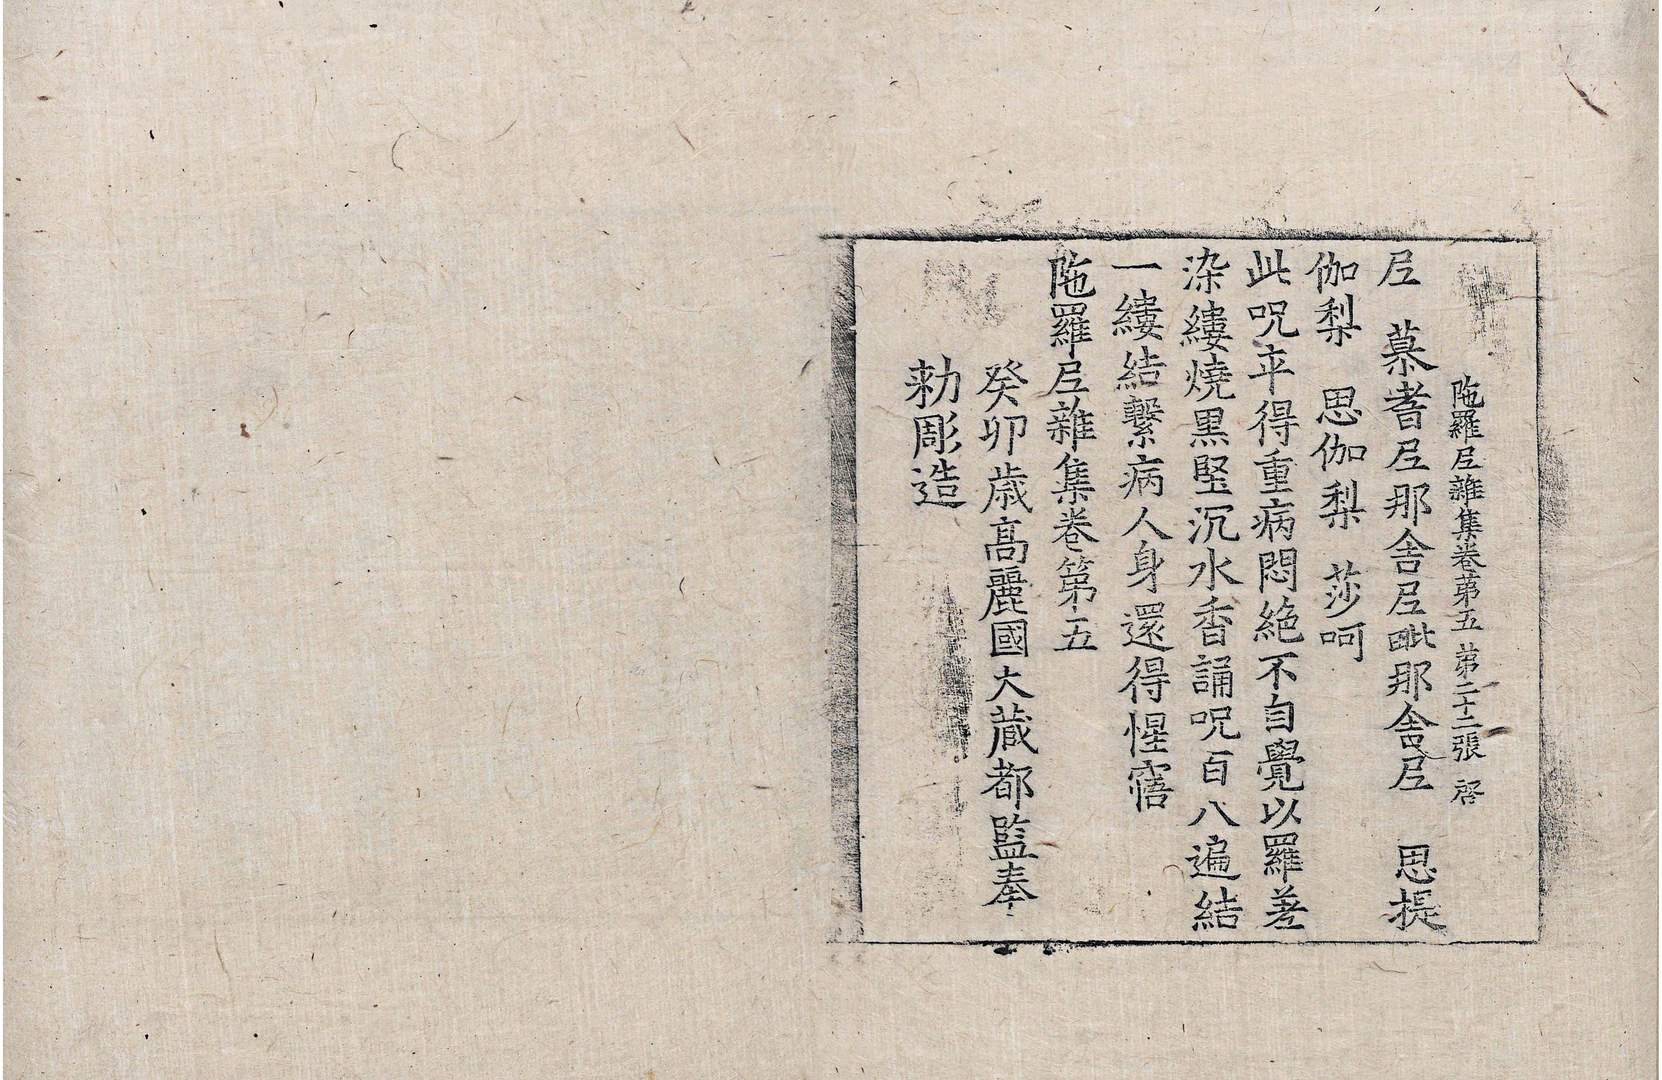 陁羅尼雜集卷第五 第二十二張 啓
尼 慕耆尼那舍尼毗那舍尼 思提
伽梨 思伽梨 莎呵
此呪平得重病悶絶不自覺以羅差
染縷燒黒堅沉水香誦呪百八遍結
一縷結繋病人身還得惺寤
陁羅尼雜集卷第五
癸卯歳高麗國大藏都監奉
勅彫造